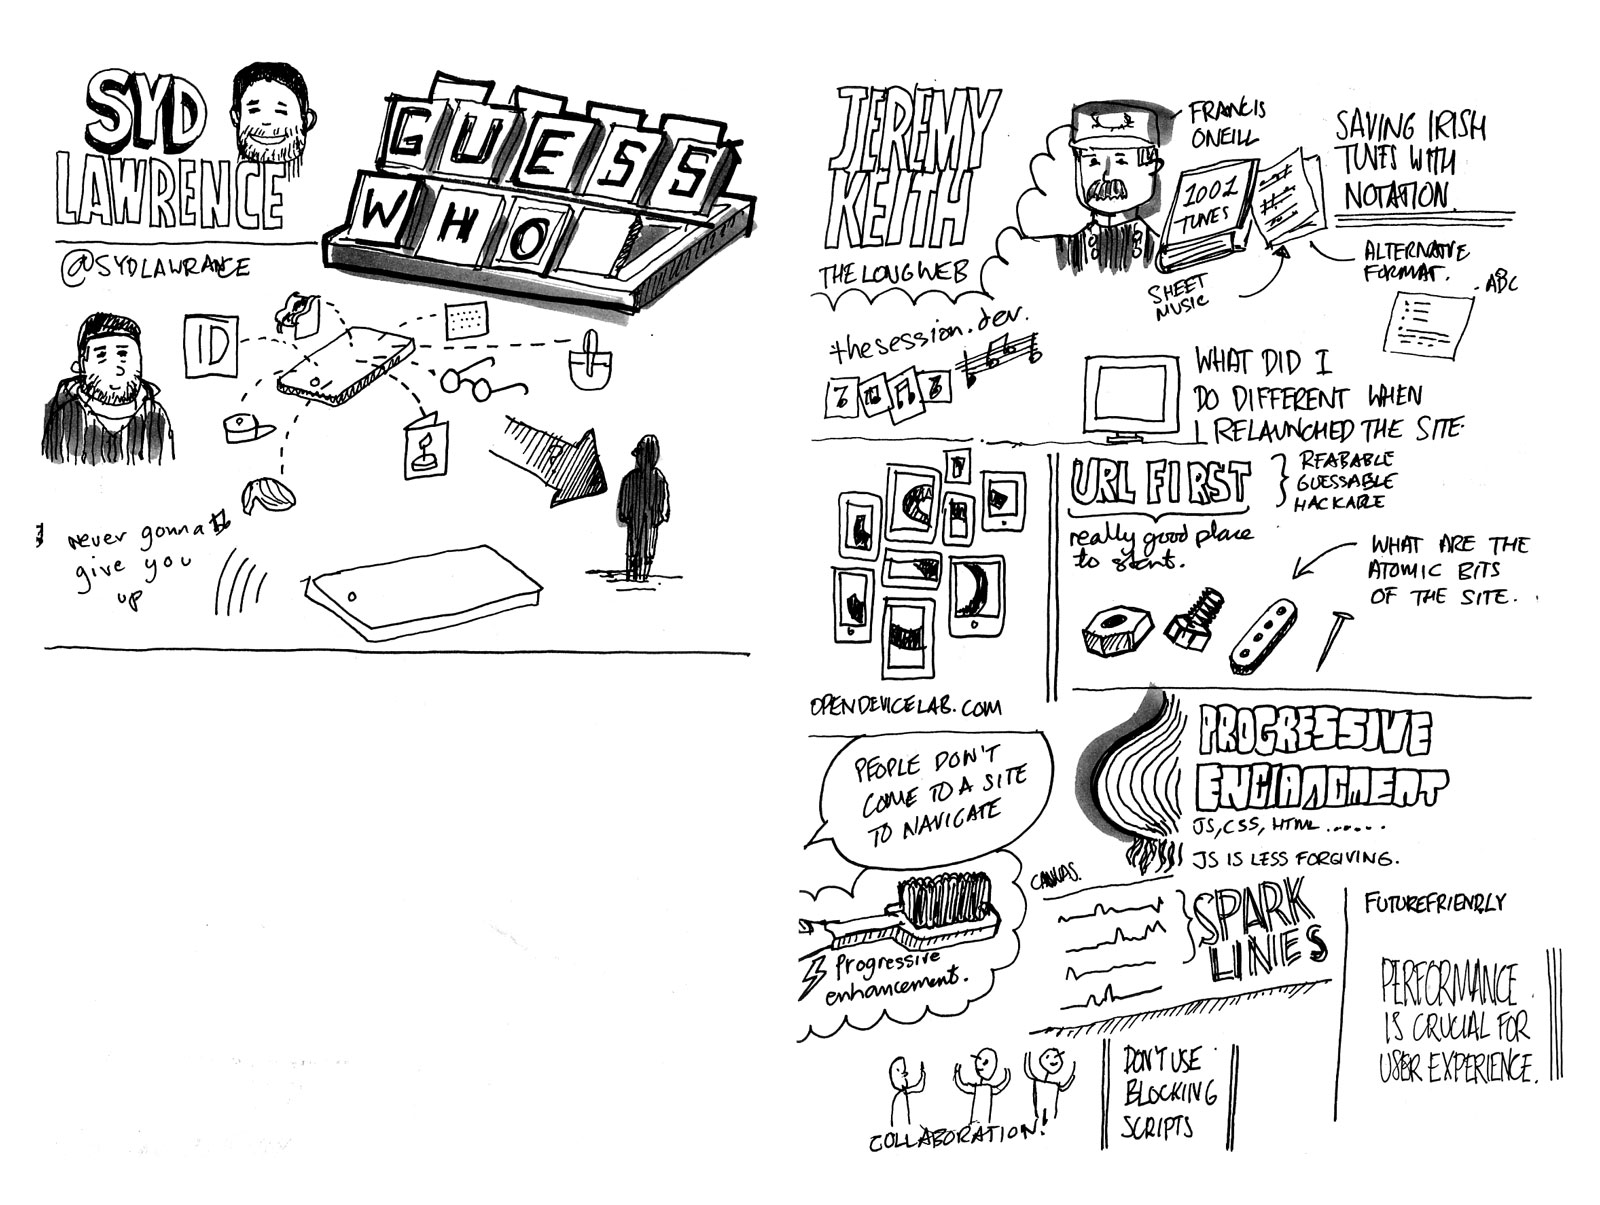 SYD
LAWRENCE
@SYDLAWRANCE
GUESS
WHO
ID
never gonna
give you
up
JEREMY
KEITH
THE LONG WEB
FRANCIS
ONEILL
1001
TUNES
SHEET
MUSIC
SAVING IRISH
TUNES WITH
NOTATION.
ALTERNATIVE
FORMAT.
.ABC
thesession.dev.
WHAT DID I
DO DIFFERENT WHEN
I RELAUNCHED THE SITE.
OPENDEVICELAB.COM
URL FIRST
REABABLE
GUESSABLE
HACKABLE
really good place
to start.
WHAT ARE THE
ATOMIC BITS
OF THE SITE...
PEOPLE DON'T
COME TO A SITE
TO NAVIGATE
Progressive
enhancement.
PROGRESSIVE
ENGHANCMENT
JS, CSS, HTML.......
JS IS LESS FORGIVING.
CANVAS.
SPARK
LINES
FUTUREFRIENDLY
PERFORMANCE
IS CRUCIAL FOR
USER EXPERIENCE.
COLLABORATION!
DON'T USE
BLOCKING
SCRIPTS